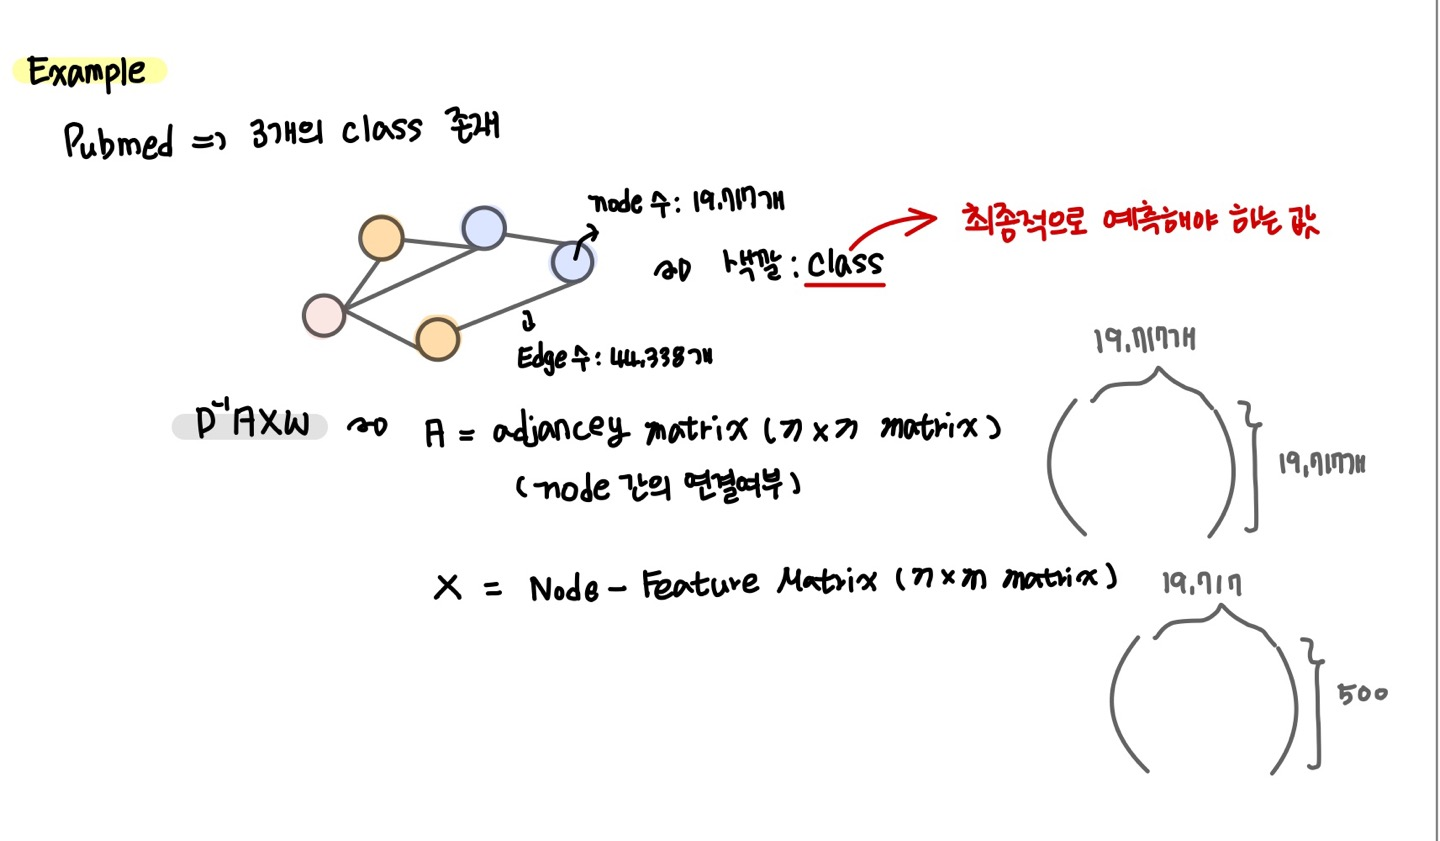 Example
Pubmed => 3개의 class 존재
node 수: 19.717개
최종적으로 예측해야 하는 값
색깔: class
Edge 수: 44.338개
19.717개
D⁻¹AXW
A = adjancey matrix (n x n matrix)
19.717개
(node 간의 연결여부)
X = Node - Feature Matrix (n x m matrix)
19.717
500